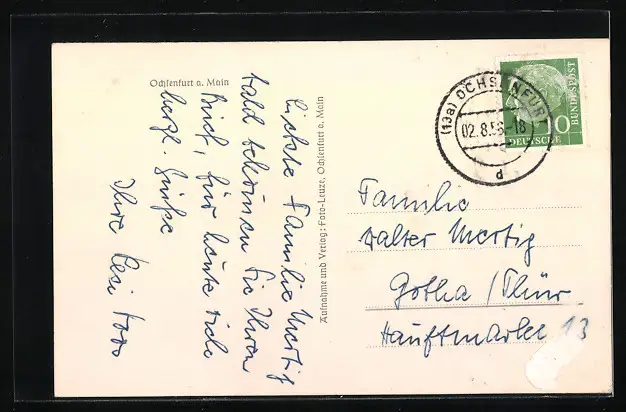 Ochsenfurt a. Main
Liebste Familie Mertig
bald schönen Sie Ihren
Brief, für heute viele
herzl. Grüße
Ihre
Aufnahme und Verlag: Foto-Leuze, Ochsenfurt a. Main
(13a) OCHSENFURT
02.8.56-18
d
10
DEUTSCHE
BUNDESPOST
Familie
Walter Mertig
Gotha / Thür
Hauptmarkt 13